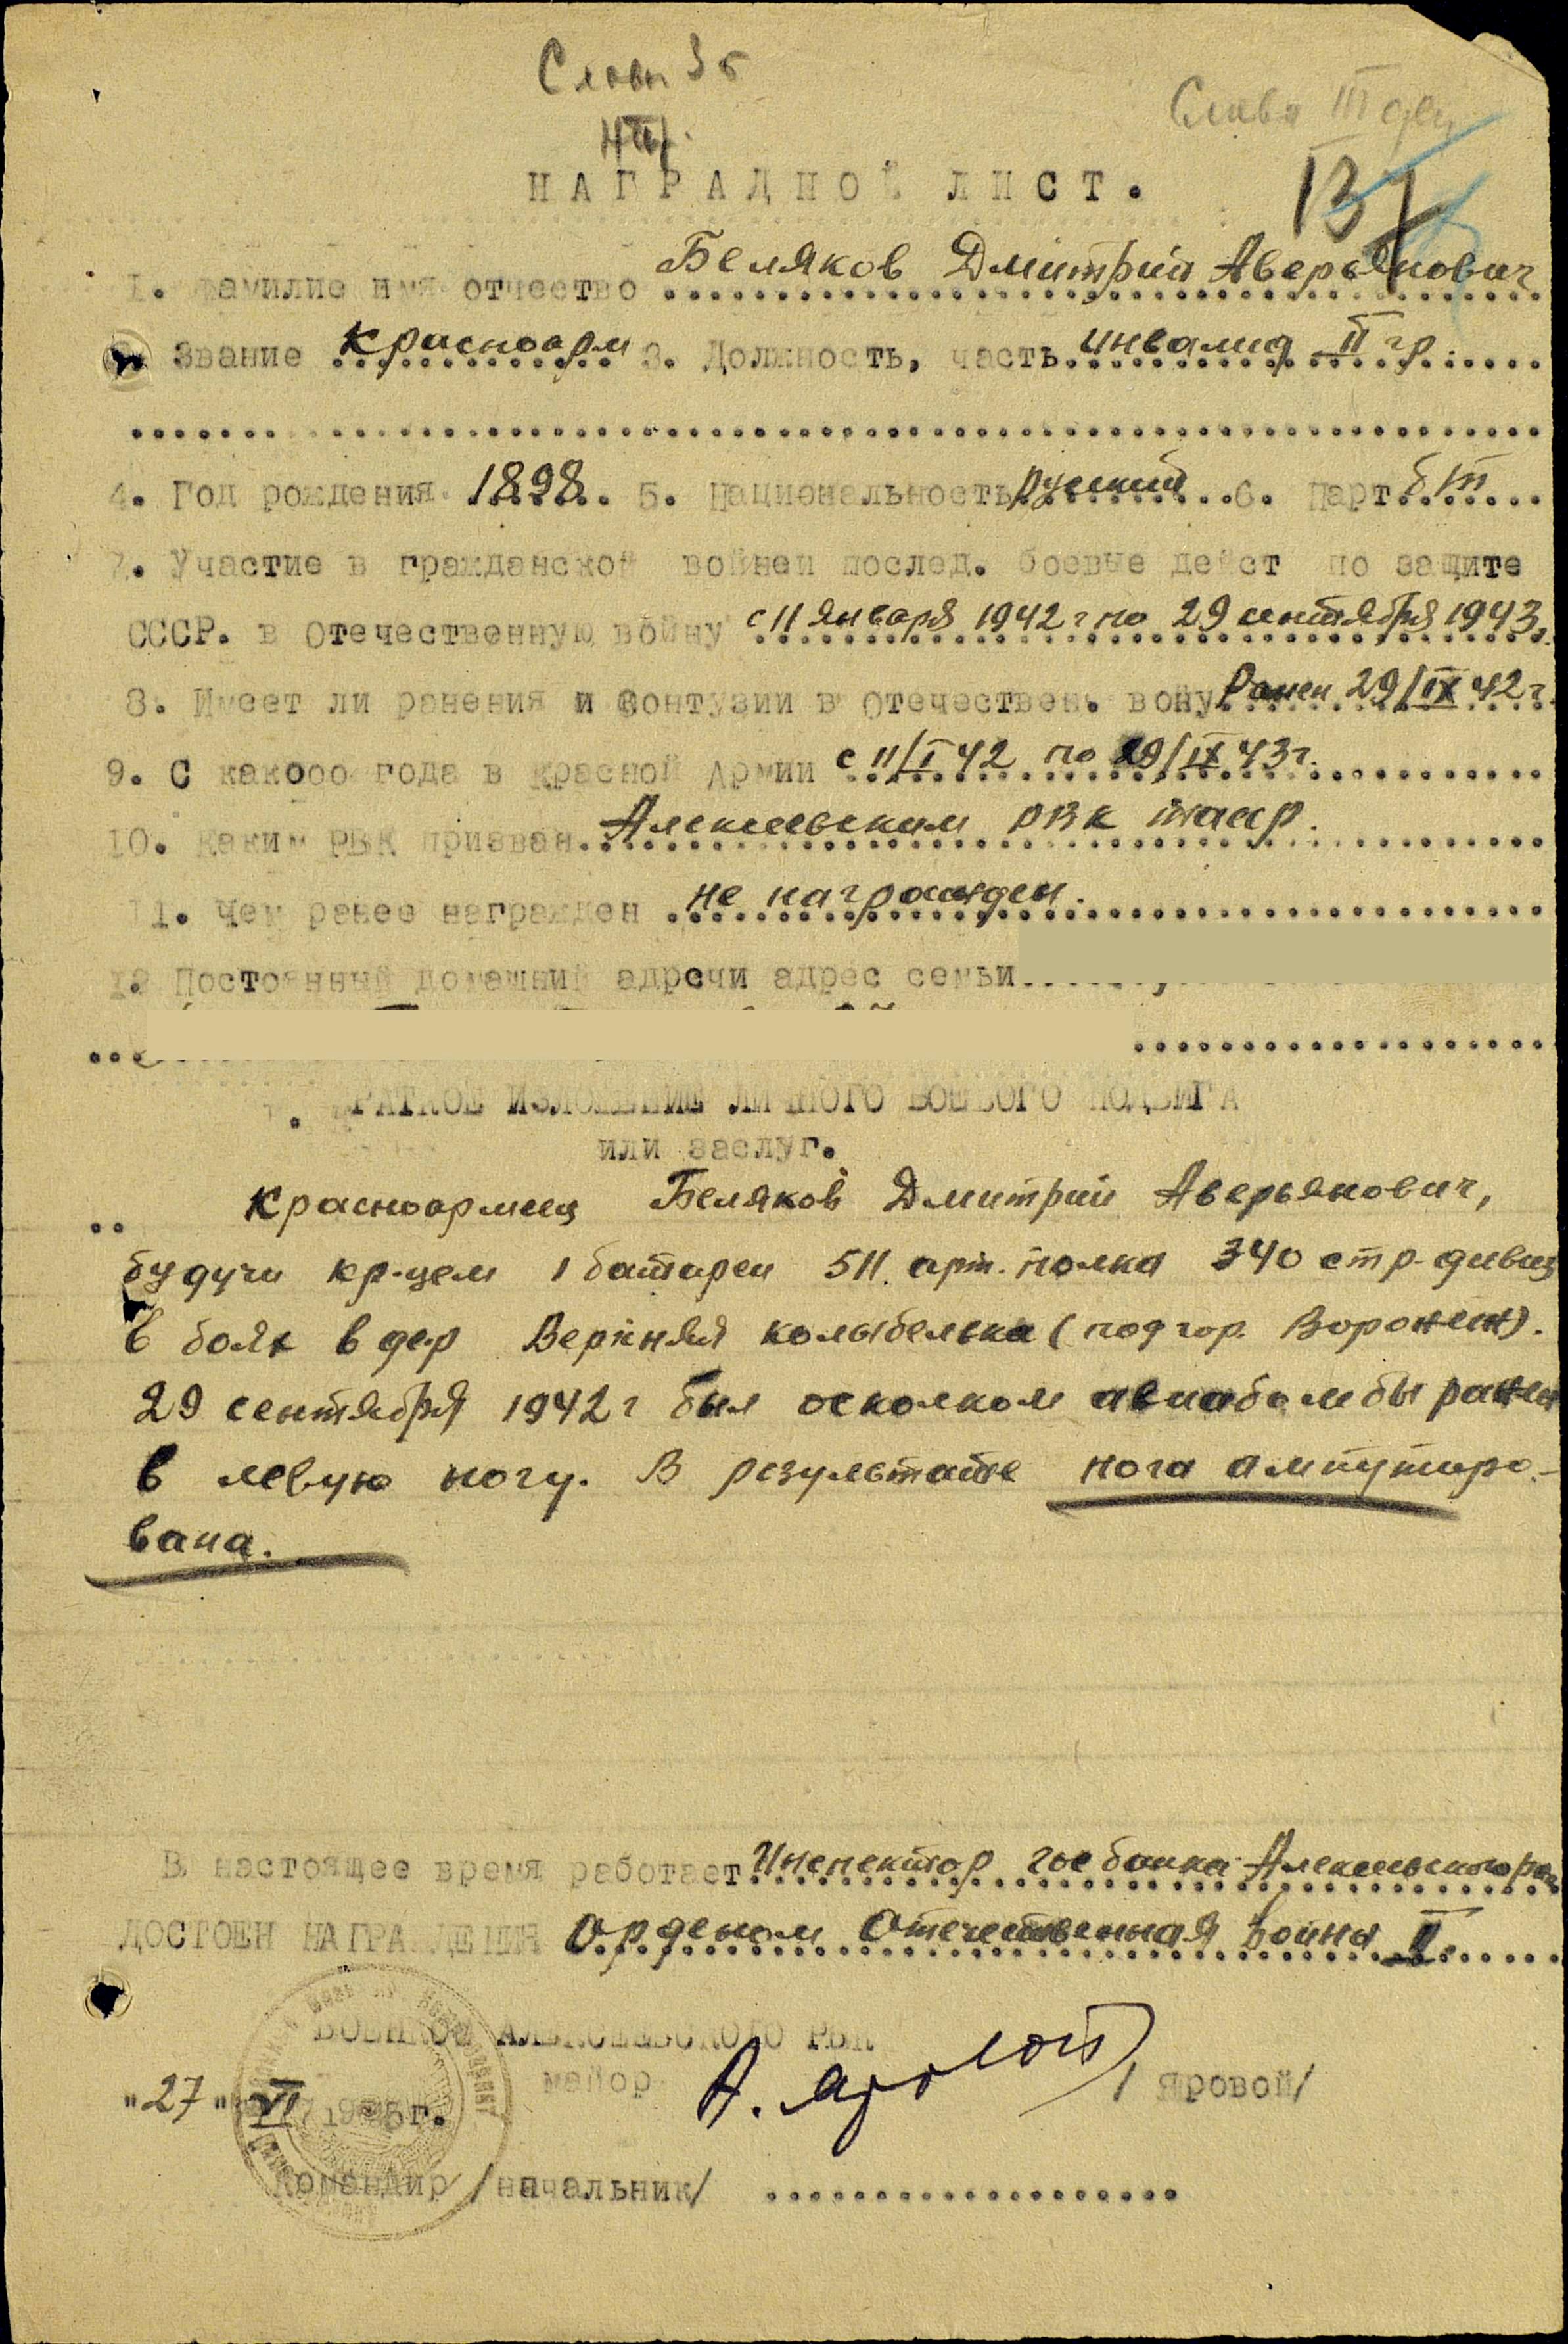 Слава 3 с
Слава III
137
НАГРАДНОЙ ЛИСТ.
1. Фамилие имя отчество Беляков Дмитрий Аверьянович
2. Звание красноарм 3. Должность, часть инвалид II гр.
4. Год рождения 1898. 5. Национальность русский 6. Парт б/п
7. Участие в гражданской войнеи послед. боевые дейст по защите
СССР. в Отечественную войну с 11 января 1942 г по 29 сентября 1943
8. Имеет ли ранения и контузии в Отечествен. вону Ранен 29/IX 42 г
9. С какооо года в Красной Армии с 11/I 42 по 29/IX 43 г.
10. Каким РВК призван. Алексеевским РВК тасср.
11. Чем ранее награжден не награжден.
12 Постоянный домашний адречи адрес семьи
КРАТКОЕ ИЗЛОЖЕНИЕ ЛИЧНОГО БОЕВОГО ПОДВИГА
или заслуг.
Красноармеец Беляков Дмитрий Аверьянович,
будучи кр-цем 1 батареи 511 арт. полка 340 стр. дивиз
в боях в дер Верхняя колыбелька (под гор. Воронеж).
29 сентября 1942 г был осколком авиабомбы ранен
в левую ногу. В результате нога ампутиро-
вана.
В настоящее время работает Инспектор госбанка Алексеевского
ДОСТОЕН НАГРАЖДЕНИЯ Орденом Отечественная война II.
ВОЕНКОМ АЛЕКСЕЕВСКОГО РВК
майор А. Яровой /Яровой/
"27" VI 1945 г.
Командир /начальник/